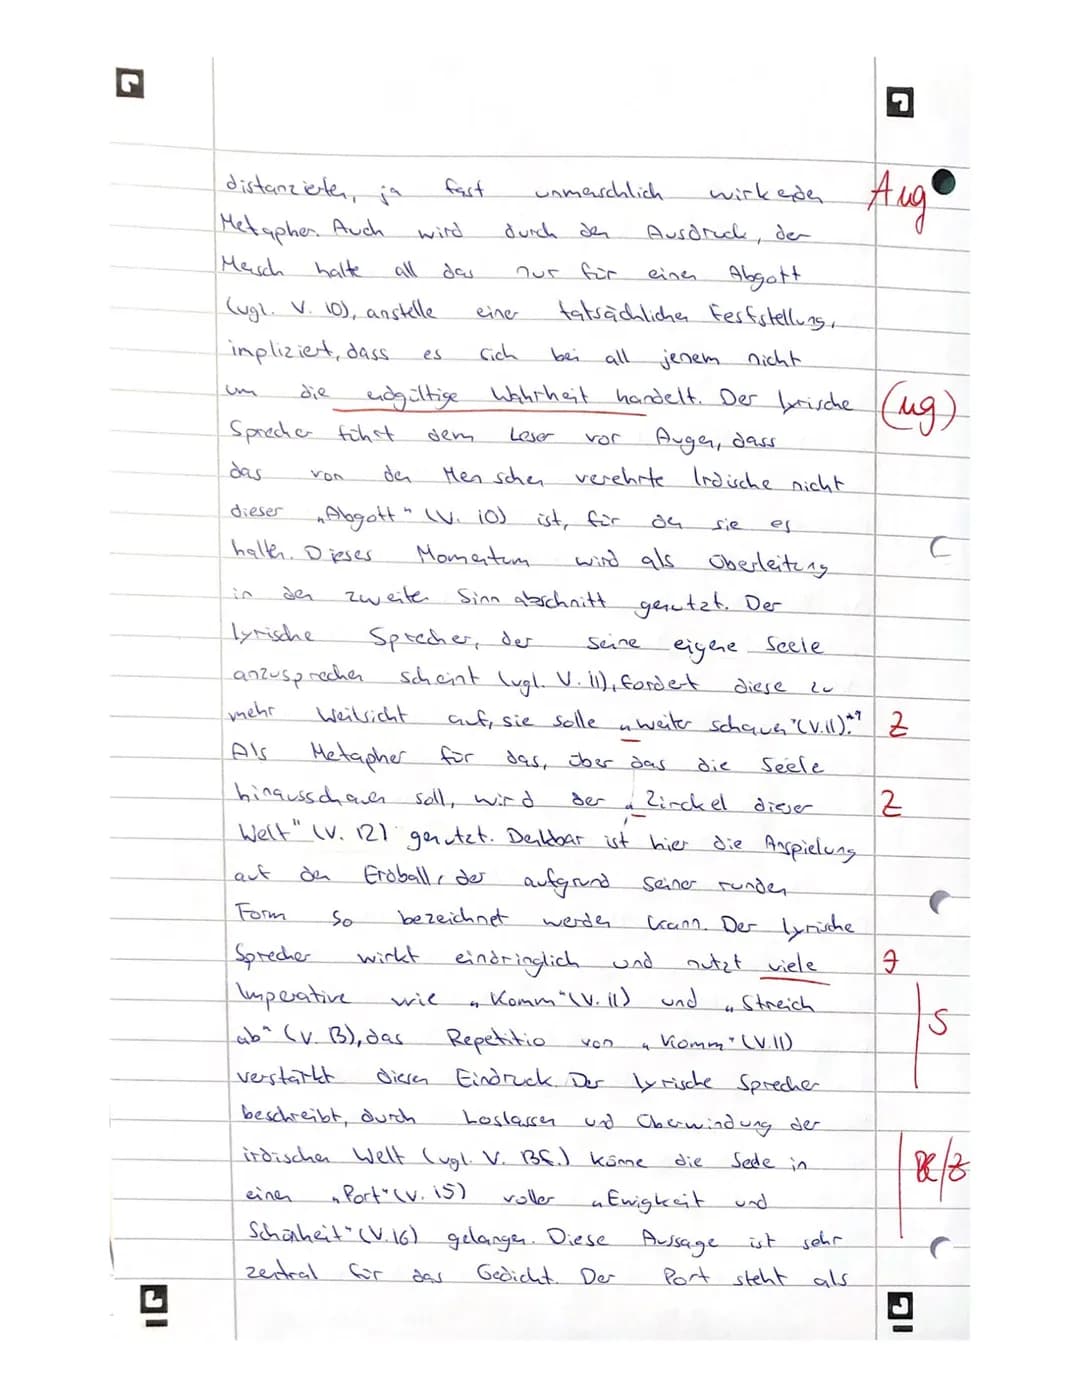 distanzierten, ja fast unmenschlich wirkenden Aug
Metapher. Auch wird durch den Ausdruck, der
Mensch halte all das nur für einen Abgott
(vgl. V. 10), anstelle einer tatsächlichen Feststellung,
impliziert, dass es sich bei all jenem nicht
um die endgültige Wahrheit handelt. Der lyrische (ug)
Sprecher führt dem Leser vor Augen, dass
das von den Menschen verehrte Irdische nicht
dieser „Abgott" (V. 10) ist, für den sie es
halten. Dieses Momentum wird als Überleitung
in den zweiten Sinnabschnitt genutzt. Der
lyrische Sprecher, der seine eigene Seele
anzusprechen scheint (vgl. V. 11), fordert diese zu
mehr Weitsicht auf, sie solle „weiter schauen" (V.11). Z
Als Metapher für das, über das die Seele
hinausschauen soll, wird der „Zirckel dieser Z
Welt" (V. 12) genutzt. Denkbar ist hier die Anspielung
auf den Erdball, der aufgrund seiner runden
Form so bezeichnet werden kann. Der lyrische
Sprecher wirkt eindringlich und nutzt viele
Imperative wie „Komm" (V. 11) und „Streich S
ab" (V. 13), das Repetitio von „Komm" (V.11)
verstärkt diesen Eindruck. Der lyrische Sprecher
beschreibt, durch Loslassen und Überwindung der
irdischen Welt (vgl. V. 13f.) käme die Seele in
einen „Port" (V. 15) voller „Ewigkeit und
Schönheit" (V.16) gelangen. Diese Aussage ist sehr
zentral für das Gedicht. Der Port steht als